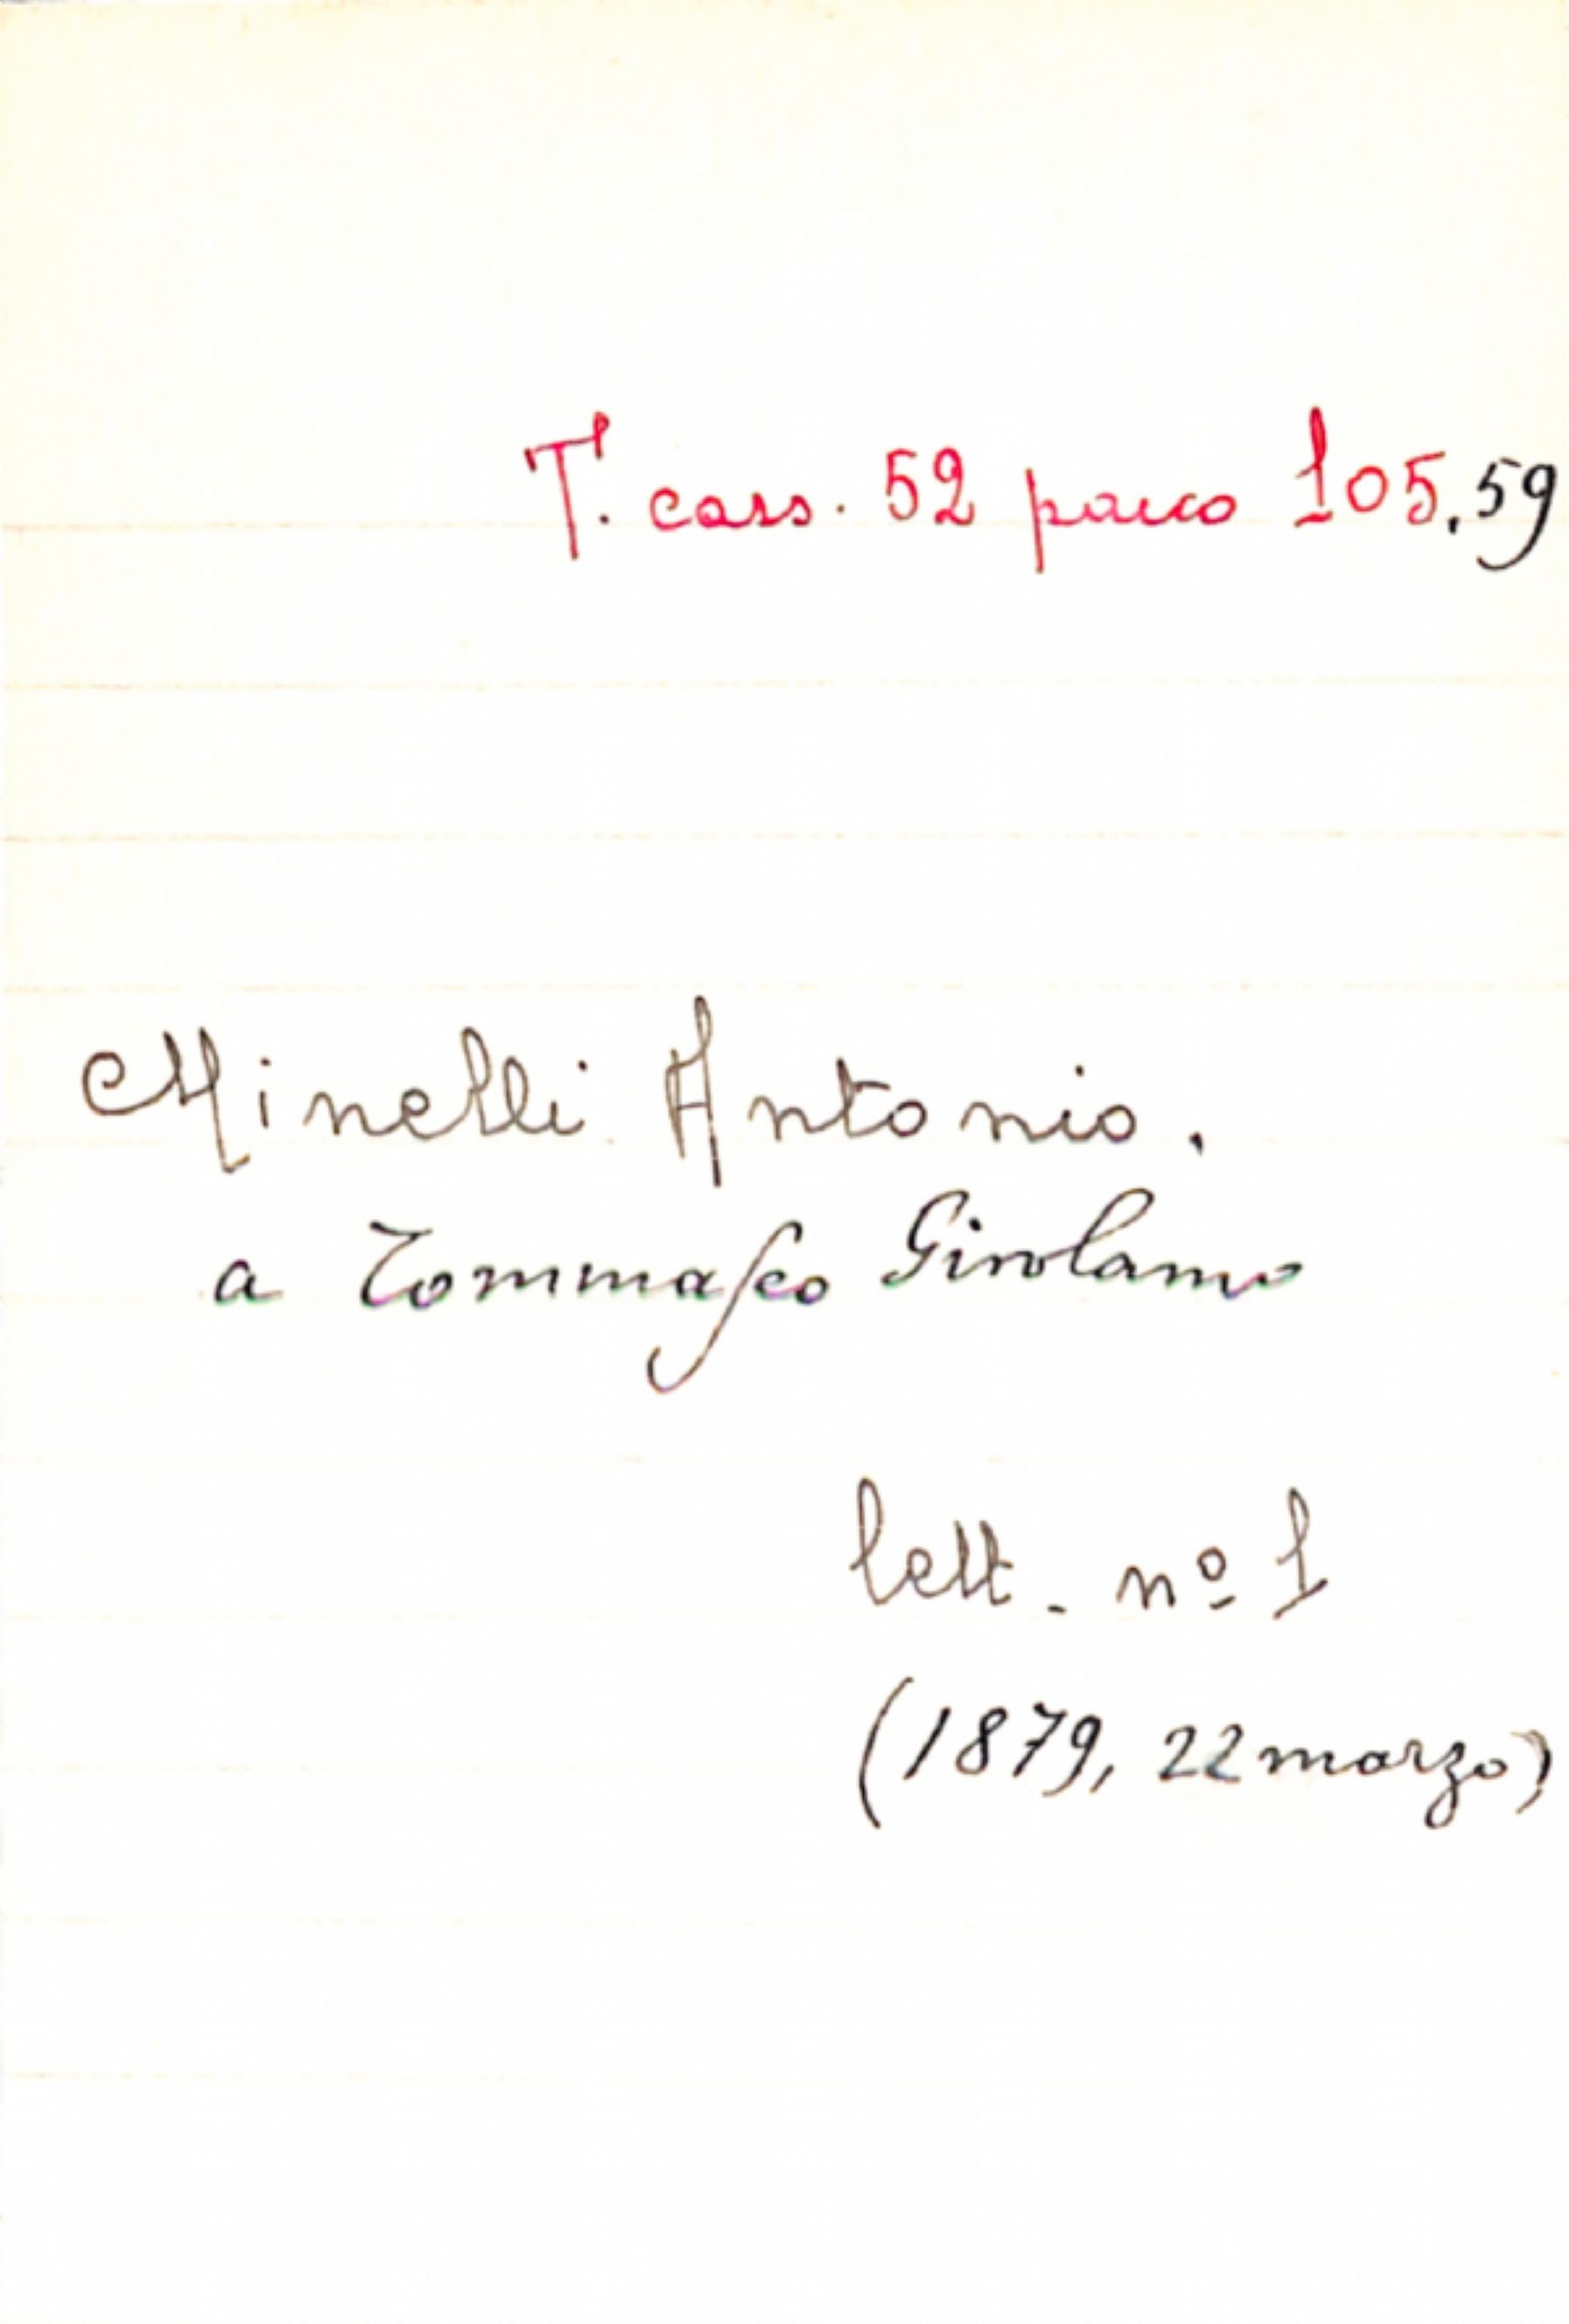 T. cass. 52 pacco 105.59
Minelli Antonio.
a Tommaseo Girolamo
lett. nº 1
(1879, 22 marzo)